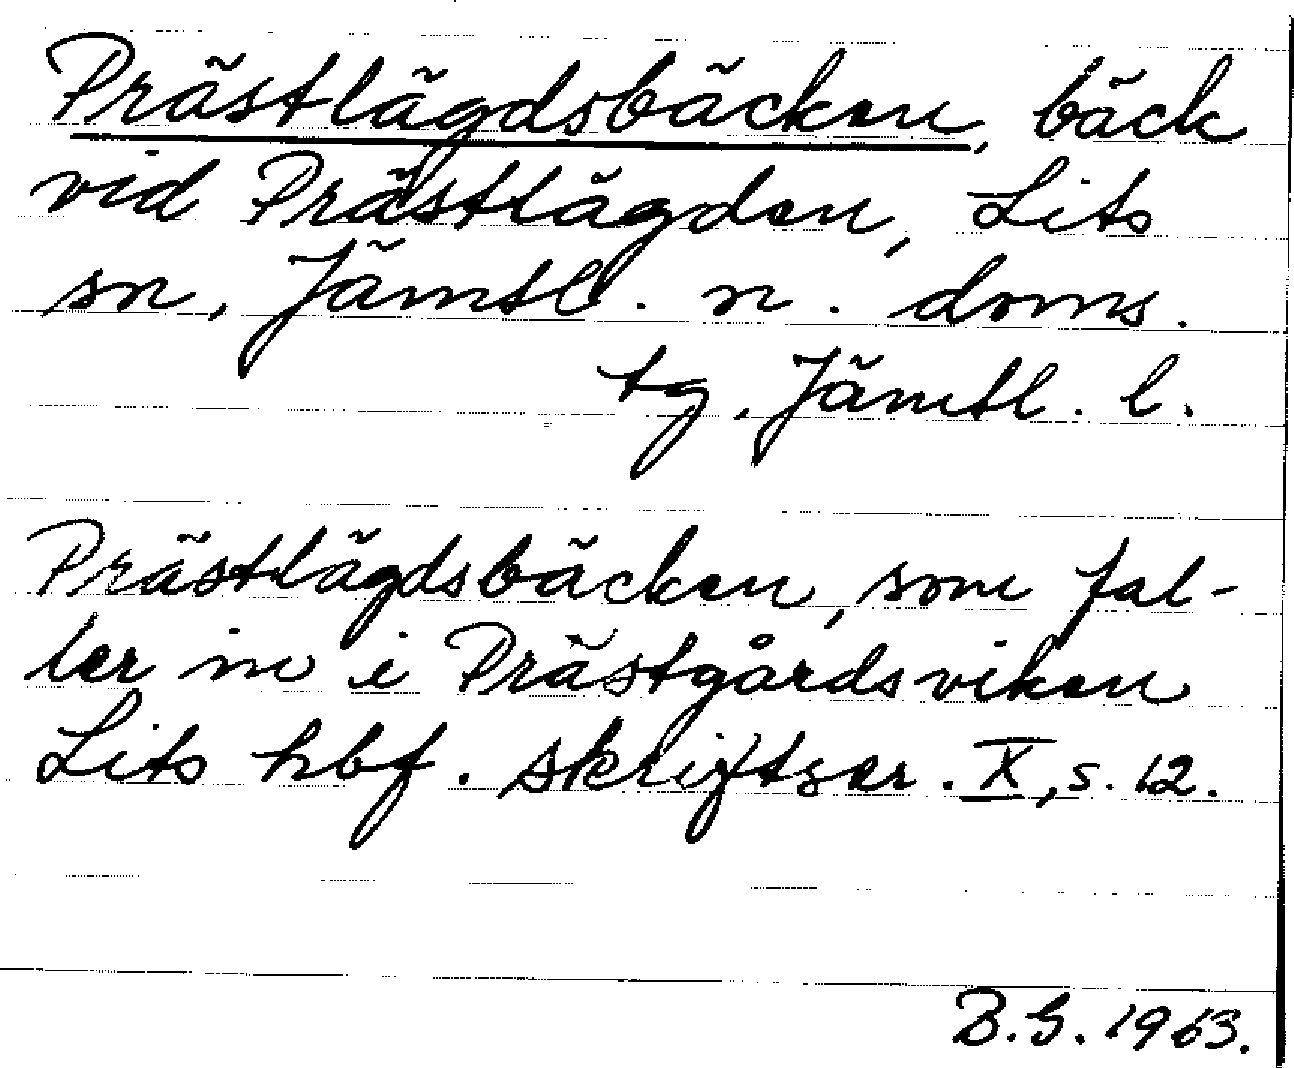 Prästlägdsbäcken, bäck
vid Prästlägden, Lits
sn, Jämtl. n. doms.
tg, Jämtl. l.
Prästlägdsbäcken, som fal-
ler in i Prästgårdsviken
Lits hbf. skriftser. X, s. 12.
B.G. 1963.